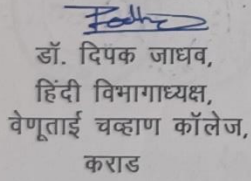 डॉ. दिपक जाधव,
हिंदी विभागाध्यक्ष,
वेणूताई चव्हाण कॉलेज,
कराड